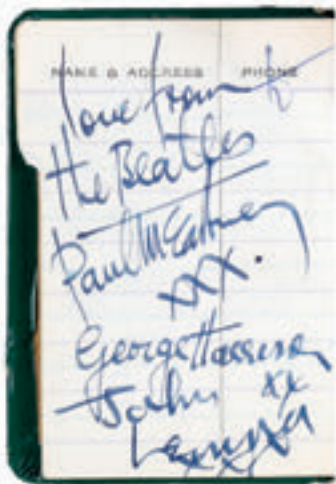 NAME & ADDRESS PHONE
love from
the Beatles
Paul McCartney
XXX.
George Harrison
John xx
Lennon
xxx